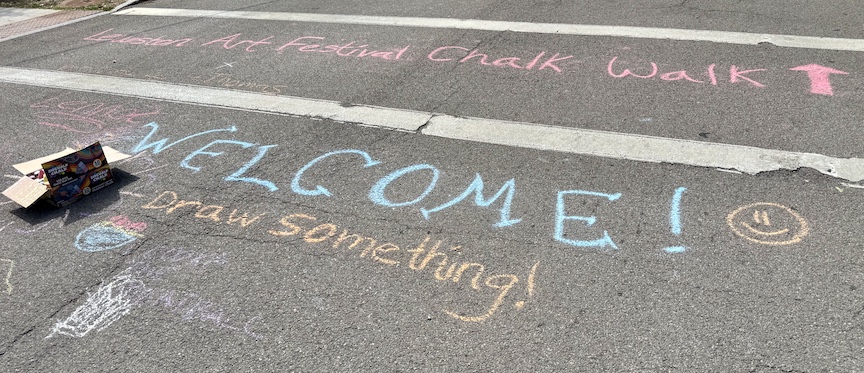 Lewiston Art Festival Chalk Walk
WELCOME!
Draw Something!